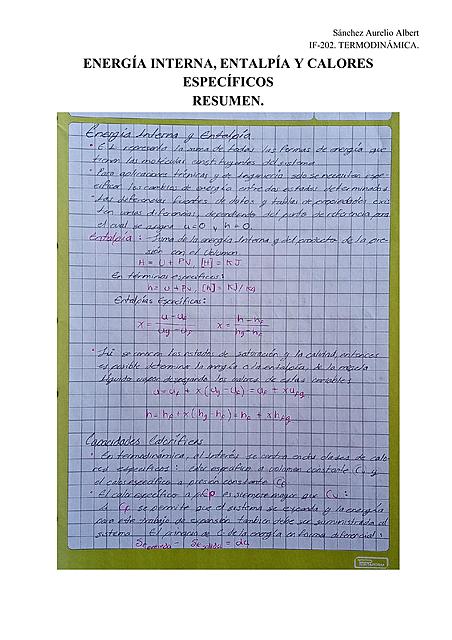 Sánchez Aurelio Albert
IF-202. TERMODINÁMICA.
ENERGÍA INTERNA, ENTALPÍA Y CALORES
ESPECÍFICOS
RESUMEN.
Energía Interna y Entalpía
• E.I. representa la suma de todas las formas de energía que
tienen las moléculas constituyentes del sistema
• Para aplicaciones técnicas y de Ingeniería solo se necesitan espe-
cificar los cambios de energía entre dos estados determinados.
• Las diferencias fuentes de datos y tablas de propiedades exis
ten varias diferencias, dependiendo del punto de referencia para
el cual se asigna u=0 y h=0.
Entalpía: Suma de la energía Interna y del producto de la pre-
sión con el Volumen
H = U + PV, [H] = KJ
En términos específicos:
h = u + Pv, [h] = KJ/Kg
Entalpías Específicas:
x = u - uf / ug - uf    x = h - hf / hg - hf
• Si se conocen los estados de saturación y la calidad, entonces
es posible determinar la energía o la entalpía de la mezcla
líquido vapor despejando los valores de estas variables
u = uf + x(ug - uf) = uf + xufg
h = hf + x(hg - hf) = hf + xhfg
Capacidades Caloríficas
• En termodinámica, el interés se centra en dos clases de calo-
res específicos: calor específico a volumen constante Cv y
el calor específico a presión constante Cp
• El calor específico a Cp es siempre mayor que Cv:
a Cp se permite que el sistema se expanda y la energía
para este trabajo de expansión también debe ser suministrada al
sistema. El principio de C de la energía en forma diferencial:
δe entrada - δe salida = du